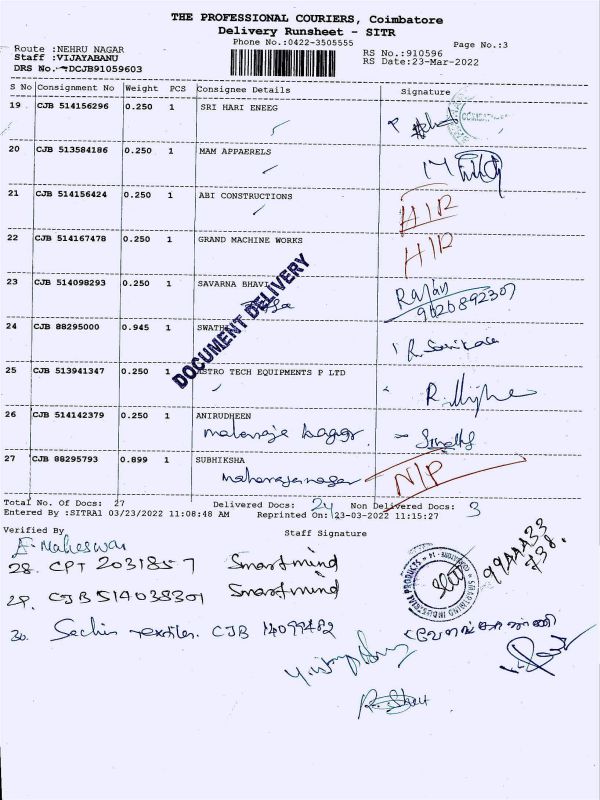 THE PROFESSIONAL COURIERS, Coimbatore
Delivery Runsheet - SITR
Phone No.:0422-3505555
Page No.:3
Route :NEHRU NAGAR
RS No.:910596
Staff :VIJAYABANU
RS Date:23-Mar-2022
DRS No.-DCJB91059603
S No Consignment No Weight PCS Consignee Details Signature
19 CJB 514156296 0.250 1 SRI HARI ENEEG
20 CJB 513584186 0.250 1 MAM APPAERELS
21 CJB 514156424 0.250 1 ABI CONSTRUCTIONS
22 CJB 514167478 0.250 1 GRAND MACHINE WORKS
23 CJB 514098293 0.250 1 SAVARNA BHAVI
Rajan
24 CJB 88295000 0.945 1 SWATHI
DOCUMENT DELIVERY
25 CJB 513941347 0.250 1 ASTRO TECH EQUIPMENTS P LTD
26 CJB 514142379 0.250 1 ANIRUDHEEN
27 CJB 88295793 0.899 1 SUBHIKSHA
Maharajanagar
N/P
Total No. Of Docs: 27 Delivered Docs: 24 Non Delivered Docs: 3
Entered By :SITRA1 03/23/2022 11:08:48 AM Reprinted On: 23-03-2022 11:15:27
Verified By
Staff Signature
Maheswari
28. CPT 2031857 Smartmind
29. CJB 514038301 Smartmind
30. Sachin textiles. CJB 14099482
SMARTMIND INDUSTRIAL PRODUCTS
9944433
738.